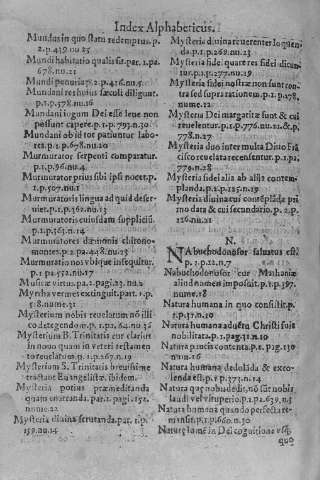 Index Alphabeticus.
Mundus in quo statu redemptus. p.
2. p. 439. nu. 25
Mundi habitatio qualis sit. par. 1. pa
678. nu. 21
Mundi penuria 2. p. 416. nu. 5
Mundani res huius sæculi diligunt.
p. 1. p. 178. nu. 16
Mundani iugum Dei esse leue non
possunt capere. p. 1. p. 793. n. 30
Mundani ob id tot patiuntur labo-
res. p. 1. p. 678. nu. 20
Murmurator serpenti comparatur.
p. 1. p. 96. nu. 4
Murmurator prius sibi ipsi nocet. p.
1. p. 507. nu. 1
Murmuratoris lingua ad quid deser-
uiet. p. 1. p. 362. nu. 13
Murmuratoris cuiusdam suppliciũ.
p. 1. p. 363. n. 14
Murmuratores dæmonis chirono-
montes. p. 2. pa. 448. nu. 23
Murmuratio nos vbique insequitur.
p. 1 pa. 552. nu. 17
Musicæ virtus. pa. 2. pagi. 23. nu. 2
Myrrha vermes extinguit. part. 1. p.
518. nume. 31
Mysterium nobis reuelatum nõ illi-
co detegendo m. p. 1. p. 64. nu. 36
Mysterium B. Trinitatis cur clarius
in nouo quam in veteri testamen-
to reuelatum. p. 1. p. 267. n. 19
Mysterium S. Trinitatis breuissime
tractant Euangelistæ. ibidem.
Mysteria potius præmeditanda
quam enarranda. par. 1. pagi. 152.
nume. 22
Mysteria diuina scrutanda. par. 1. p.
159. nu. 14
Mysteria diuina reuerenter loquen-
da. p. 1. p. 269. nu. 23
Mysteria fidei quare res fidei dican-
tur. p. 1. p. 277. nu. 19
Mysteria fidei nostræ non sunt con-
tra sed supra rationem. p. 1. p. 278,
nume. 22
Mysteria Dei margaritæ sunt & cui
reuelentur. p. 1. p. 776. nu. 21. & p.
778. n. 27
Mysteria duo inter multa Diuo Frã
cisco reuelata recensentur. p. 1. pa.
779. n. 28
Mysteria fidei alia ab alijs contem-
planda. p. 2. p. 125. n. 19
Mysteria diuina cur contẽplãda pri
mo dara & cui secundario. p. 2. p.
126. nu. 21
N.
NAbuchodonosor saluatus est?
p. 1. p. 12. n. 7
Nabuchodonosor cur Mathaniæ
aliud nomen imposuit. p. 1. p. 397.
nume. 8
Natura humana in quo consistit. p.
1. p. 37. n. 10
Natura humana aduẽtu Christi fuit
nobilitata. p. 1. pag. 31. n. 10
Natura paucis contenta. p. 1. pag. 130
nu. n. 16
Natura humana deduláda & exco-
lenda est. p. 1. p. 373. n. 14
Natura humana quo desit, nõ sũt nobis
laudi vel vituperio. p. 1. p. 639. n. 3
Natura humana quando perfecta re-
manset. p. 1. p. 660. n. 30
Naturæ lumẽ in Dei cognitione vsq;
quo